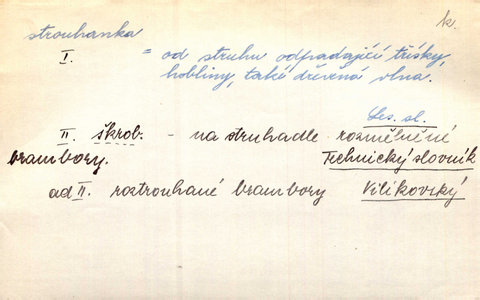 k.
strouhanka
I. = od struhu odpadající třísky,
hobliny, také dřevěná vlna.
Les. sl.
II. škrob. - na struhadle rozmělněné
brambory. Technický slovník
ad II. roztrouhané brambory Vilikovský